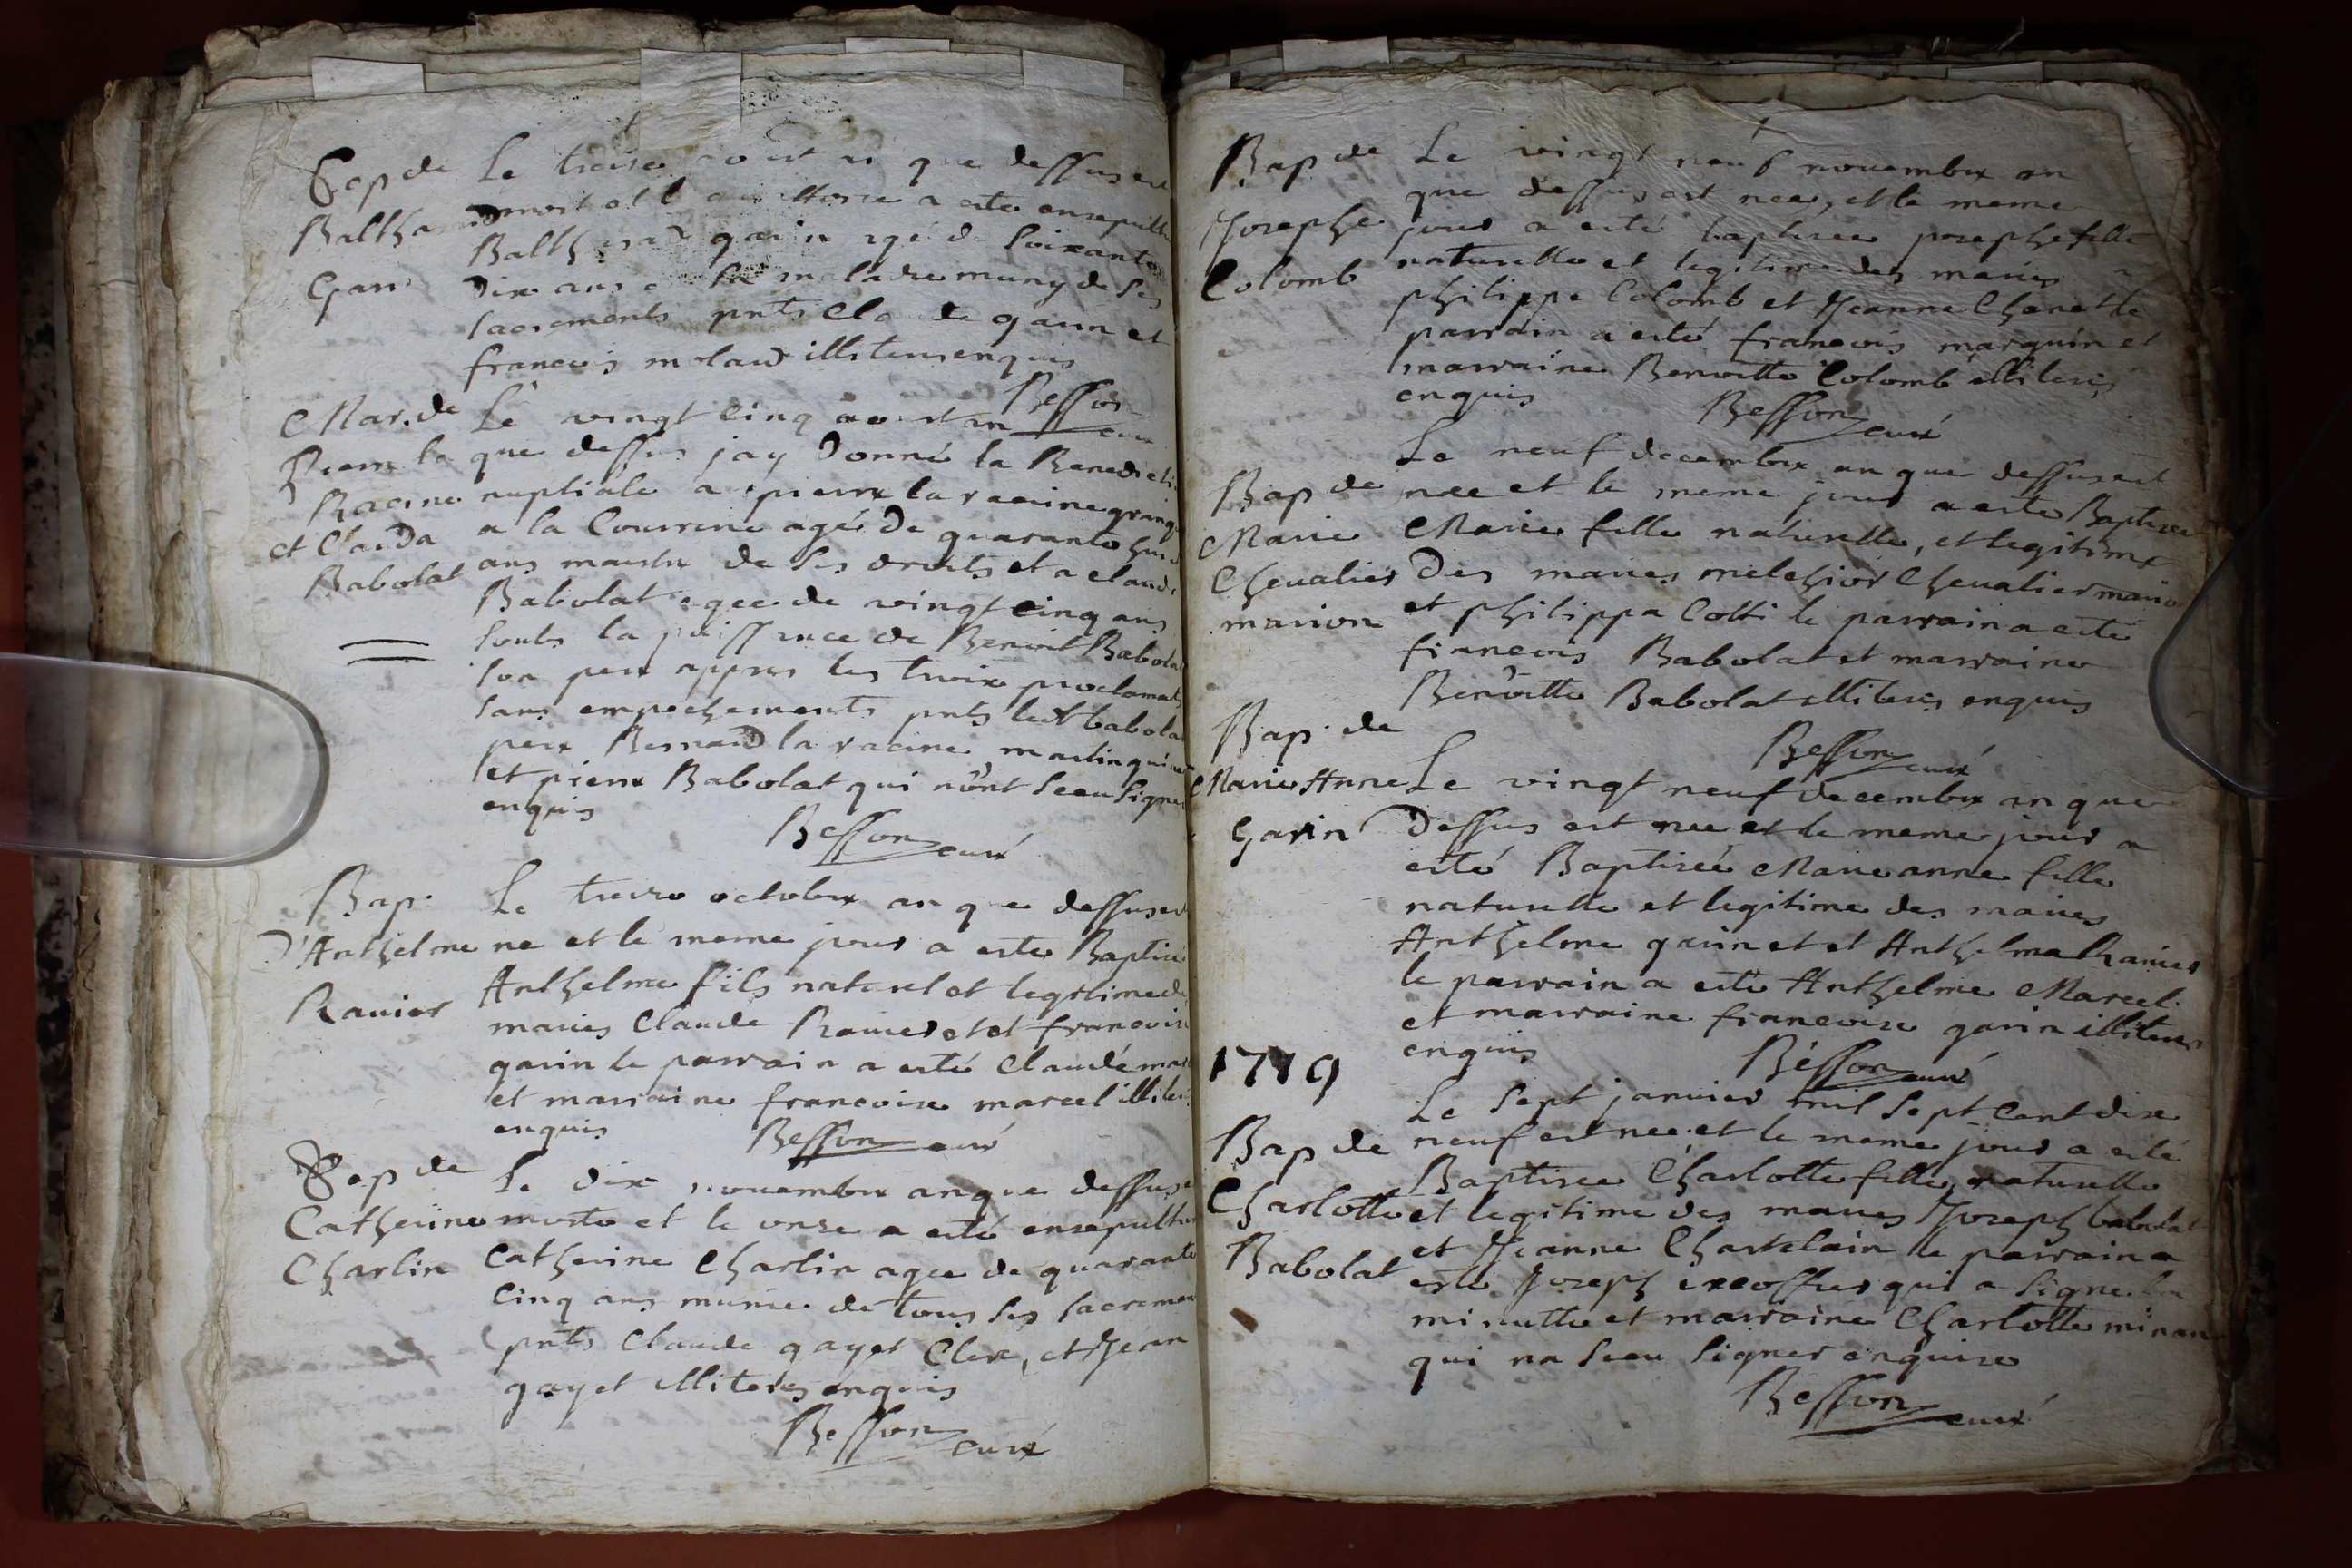 Sep de
Balthazard
Garin
Le treize aoust an que dessus est
mort et le a esté ensepulturé
Balthesard garin agé de soixante
Dix ans e sa maladie muny de ses
sacrements pnts Claude garin et
francois molard illiteres enquis
Besson curé
Mar. de
Pierre la
Racine
et Clauda
Babolat
Le vingt cinq aoust an
que dessus jay Donné la Benedicti
nuptiale a pierre la racine grang
a la Courrerie agé de quarante huit
ans maistre de ses droits et a claud
Babolat agee de vingt cinq ans
soubs la puissance de Benoit Babola
son pere appres les trois proclamat
sans empechements pnts ledt babola
pere Bernard la racine, martin
et pierre Babolat qui n'ont sceu signer
enquis
Besson curé
Bap.
D'Anthelme
Ravier
Le treize octobre an que dessus est
ne et le meme jour a esté Baptisé
Anthelme fils naturel et legitime de
mariés Claude Ravier et et francoise
garin le parrain a esté Claude mar
et marraine francoise marcel illiter
enquis
Besson curé
Sep de
Catherine
Charlin
Le dix novembre an que dessus e
morte et le onze a esté ensepultur
Catherine Charlin agee de quarante
Cinq ans munie de tous ses sacremen
pnts Claude gayet Clerc, et Jean
gayet illiteres enquis
Besson curé
Bap de
Josephe
Colomb
Le vingt neuf novembre an
que dessus est nee, et le meme
jour a esté baptisee josephe fille
naturelle et legitime des mariés
philippe Colomb et Jeanne Chanet le
parrain a esté francois marguin et
marraine Benoitte Colomb illiteres
enquis
Besson curé
Bap de
Marie
Chevalier
marion
Le neuf decembre an que dessus est
nee et le meme jour a esté Baptisee
Marie fille naturelle, et legitime
Des mariés melchior Chevalier marion
et philippa Cotti le parrain a esté
francois Babolat et marraine
Benoitte Babolat illiteres enquis
Besson curé
Bap. de
Marie Anne
Garin
Le vingt neuf decembre an que
Dessus est nee et le meme jour a
esté Baptisée Marie anne fille
naturelle et legitime des mariés
Anthelme garin et et Anthelma Ravier
le parrain a esté Anthelme Marcel
et marraine francoise garin illiteres
enquis
Besson curé
1719
Bap de
Charlotte
Babolat
Le sept janvier mil sept cent dix
neuf est nee et le meme jour a esté
Baptisee Charlotte fille naturelle
et legitime des mariés Joseph babolat
et Jeanne Chastelain le parrain a
esté Joseph excoffier qui a signe la
minutte et marraine Charlotte
qui na sceu signer enquise
Besson curé